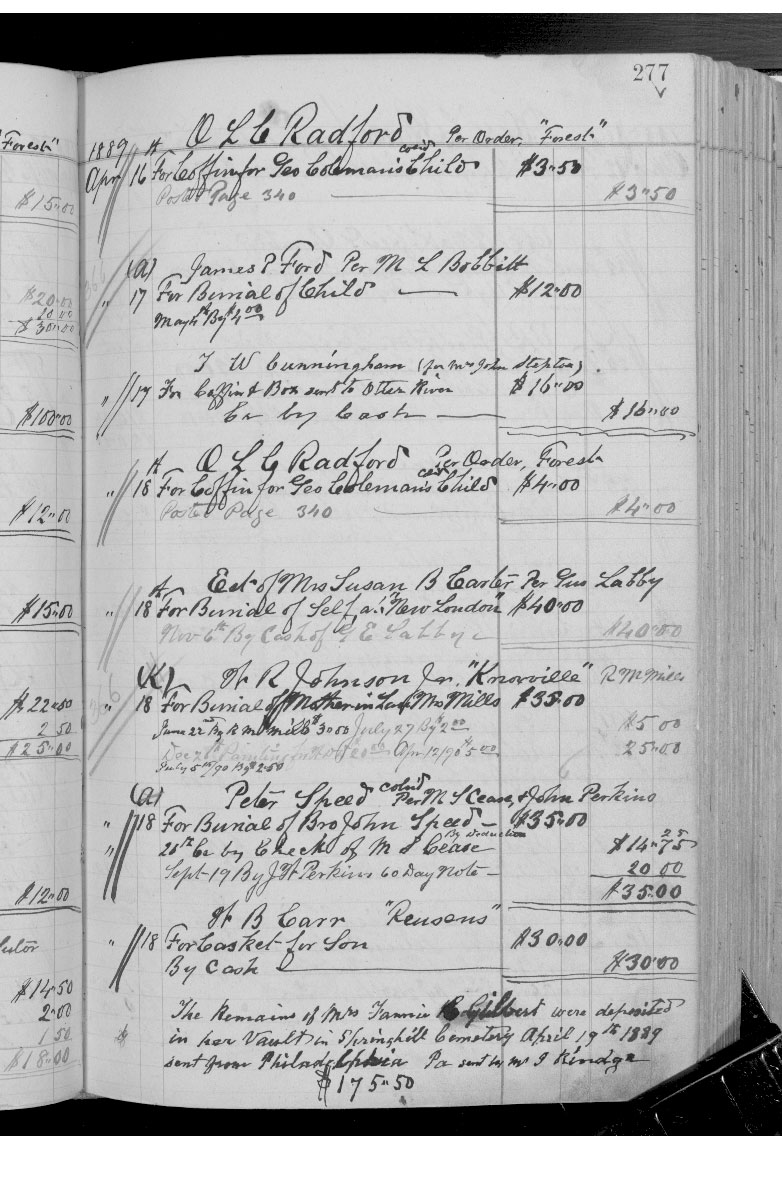 277
Forest"
1889 A O L C Radford Per Order, "Forest"
Apr 16 For Coffin for Geo Coleman's col'd Child $3.50
Posted Page 340 $3.50
$15.00
(a) James P Ford Per M L Bobbitt
" 17 For Burial of Child $12.00
May 4th By $4.00
$20.00
10.00
$30.00
T W Cunningham (for Mrs John Stepton).
" 17 For Coffin & Box sent to Otter River $16.00
Cr by Cash $16.00
$100.00
A O L C Radford Per Order, Forest
" 18 For Coffin for Geo Coleman's col'd Child $4.00
Posted Page 340 $4.00
$12.00
A Est of Mrs Susan B Carter Per Gus Labby
" 18 For Burial of Self at "New London" $40.00
Nov 6th By Cash of G E Labby $40.00
$15.00
(K) W R Johnson Jr. "Knoxville" R M Mills
" 18 For Burial of Mother in Law Mrs Mills $35.00
June 22nd By R M Mills $3.00 July 27 By $2.00 $5.00
Apr 12/90 $5.00 25.00
July 5th/90 By $2.50
$22.50
2 50
$25.00
(a) Peter Speed col'd Per M S Cease, & John Perkins
" 18 For Burial of Bro John Speed $35.00
" 25th Cr by Check of M S Cease By Deduction $14.75 25
Sept 19 By J H Perkins 60 Day Note 20 00
$35.00
$12.00
W B Carr "Reusens"
" 18 For Casket for Son $30.00
By Cash $30.00
$14.50
2.00
1 50
$18.00
The Remains of Mrs Fannie E Gilbert were deposited
in her Vault in Springhill Cemetery April 19th 1889
sent from Philadelphia Pa sent by Mr J Kindge
$175.50